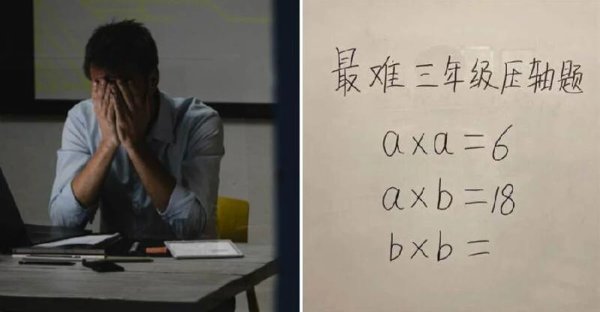 最难三年级压轴题
a×a=6
a×b=18
b×b=